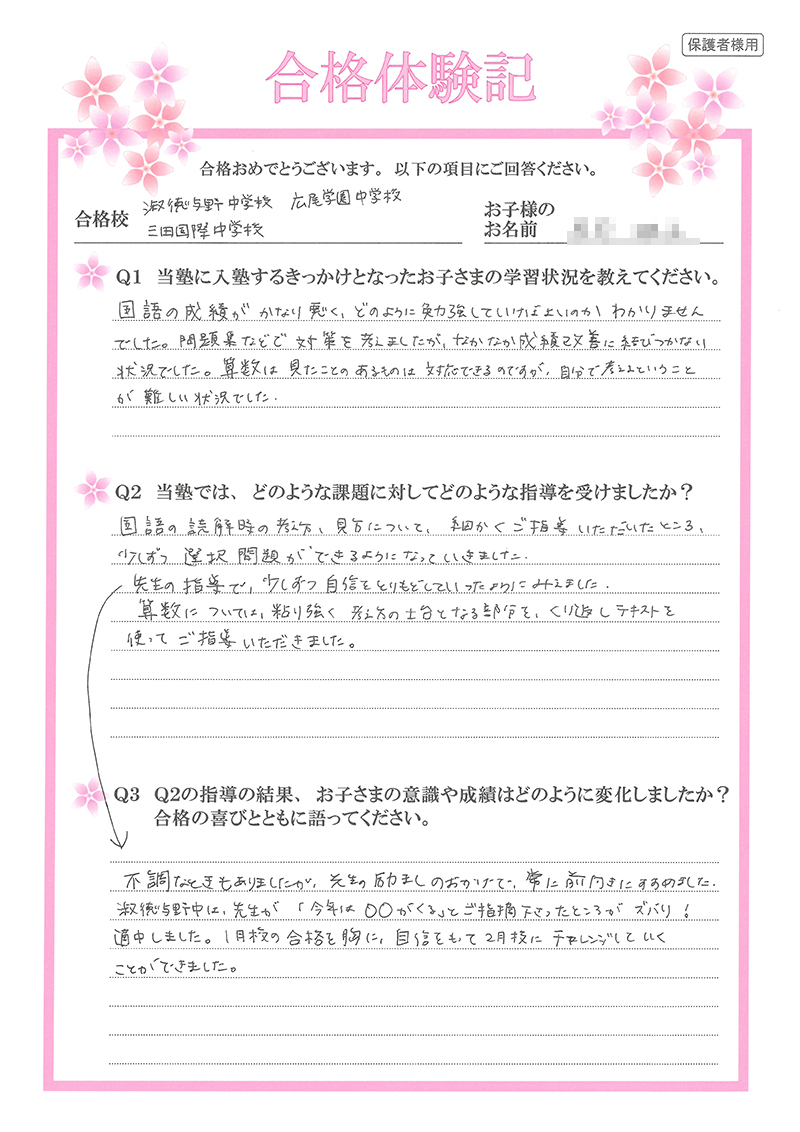 保護者様用
合格体験記
合格おめでとうございます。以下の項目にご回答ください。
合格校 淑徳与野中学校 広尾学園中学校
三田国際中学校
お子様の
お名前
Q1 当塾に入塾するきっかけとなったお子さまの学習状況を教えてください。
国語の成績がかなり悪く、どのように勉強していけばよいのかわかりません
でした。問題集などで対策を考えましたが、なかなか成績改善に結びつかない
状況でした。算数は見たことのあるものは対応できるのですが、自分で考えるということ
が難しい状況でした.
Q2 当塾では、どのような課題に対してどのような指導を受けましたか？
国語の読解時の考え方、見方について、細かくご指導いただいたところ、
少しずつ選択問題ができるようになっていきました.
先生の指導で、少しずつ自信をとりもどしていったようにみえました.
算数については、粘り強く考え方の土台となる部分を、くり返しテキストを
使ってご指導いただきました。
Q3 Q2の指導の結果、お子さまの意識や成績はどのように変化しましたか？
合格の喜びとともに語ってください。
不調なときもありましたが、先生の励ましのおかげで、常に前向きにすすめました.
淑徳与野中は、先生が「今年は〇〇がくる」とご指摘下さったところがズバリ！
適中しました。1月校の合格を胸に、自信をもって2月校にチャレンジしていく
ことができました。